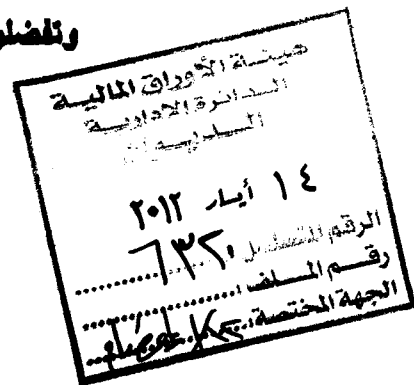 وتفضلو
هيئة الأوراق المالية
الدائرة الادارية
الديوان
١٤ أيار ٢٠١٢
الرقم المتسلسل ٦٣٢٠
رقم الملف :
الجهة المختصة :